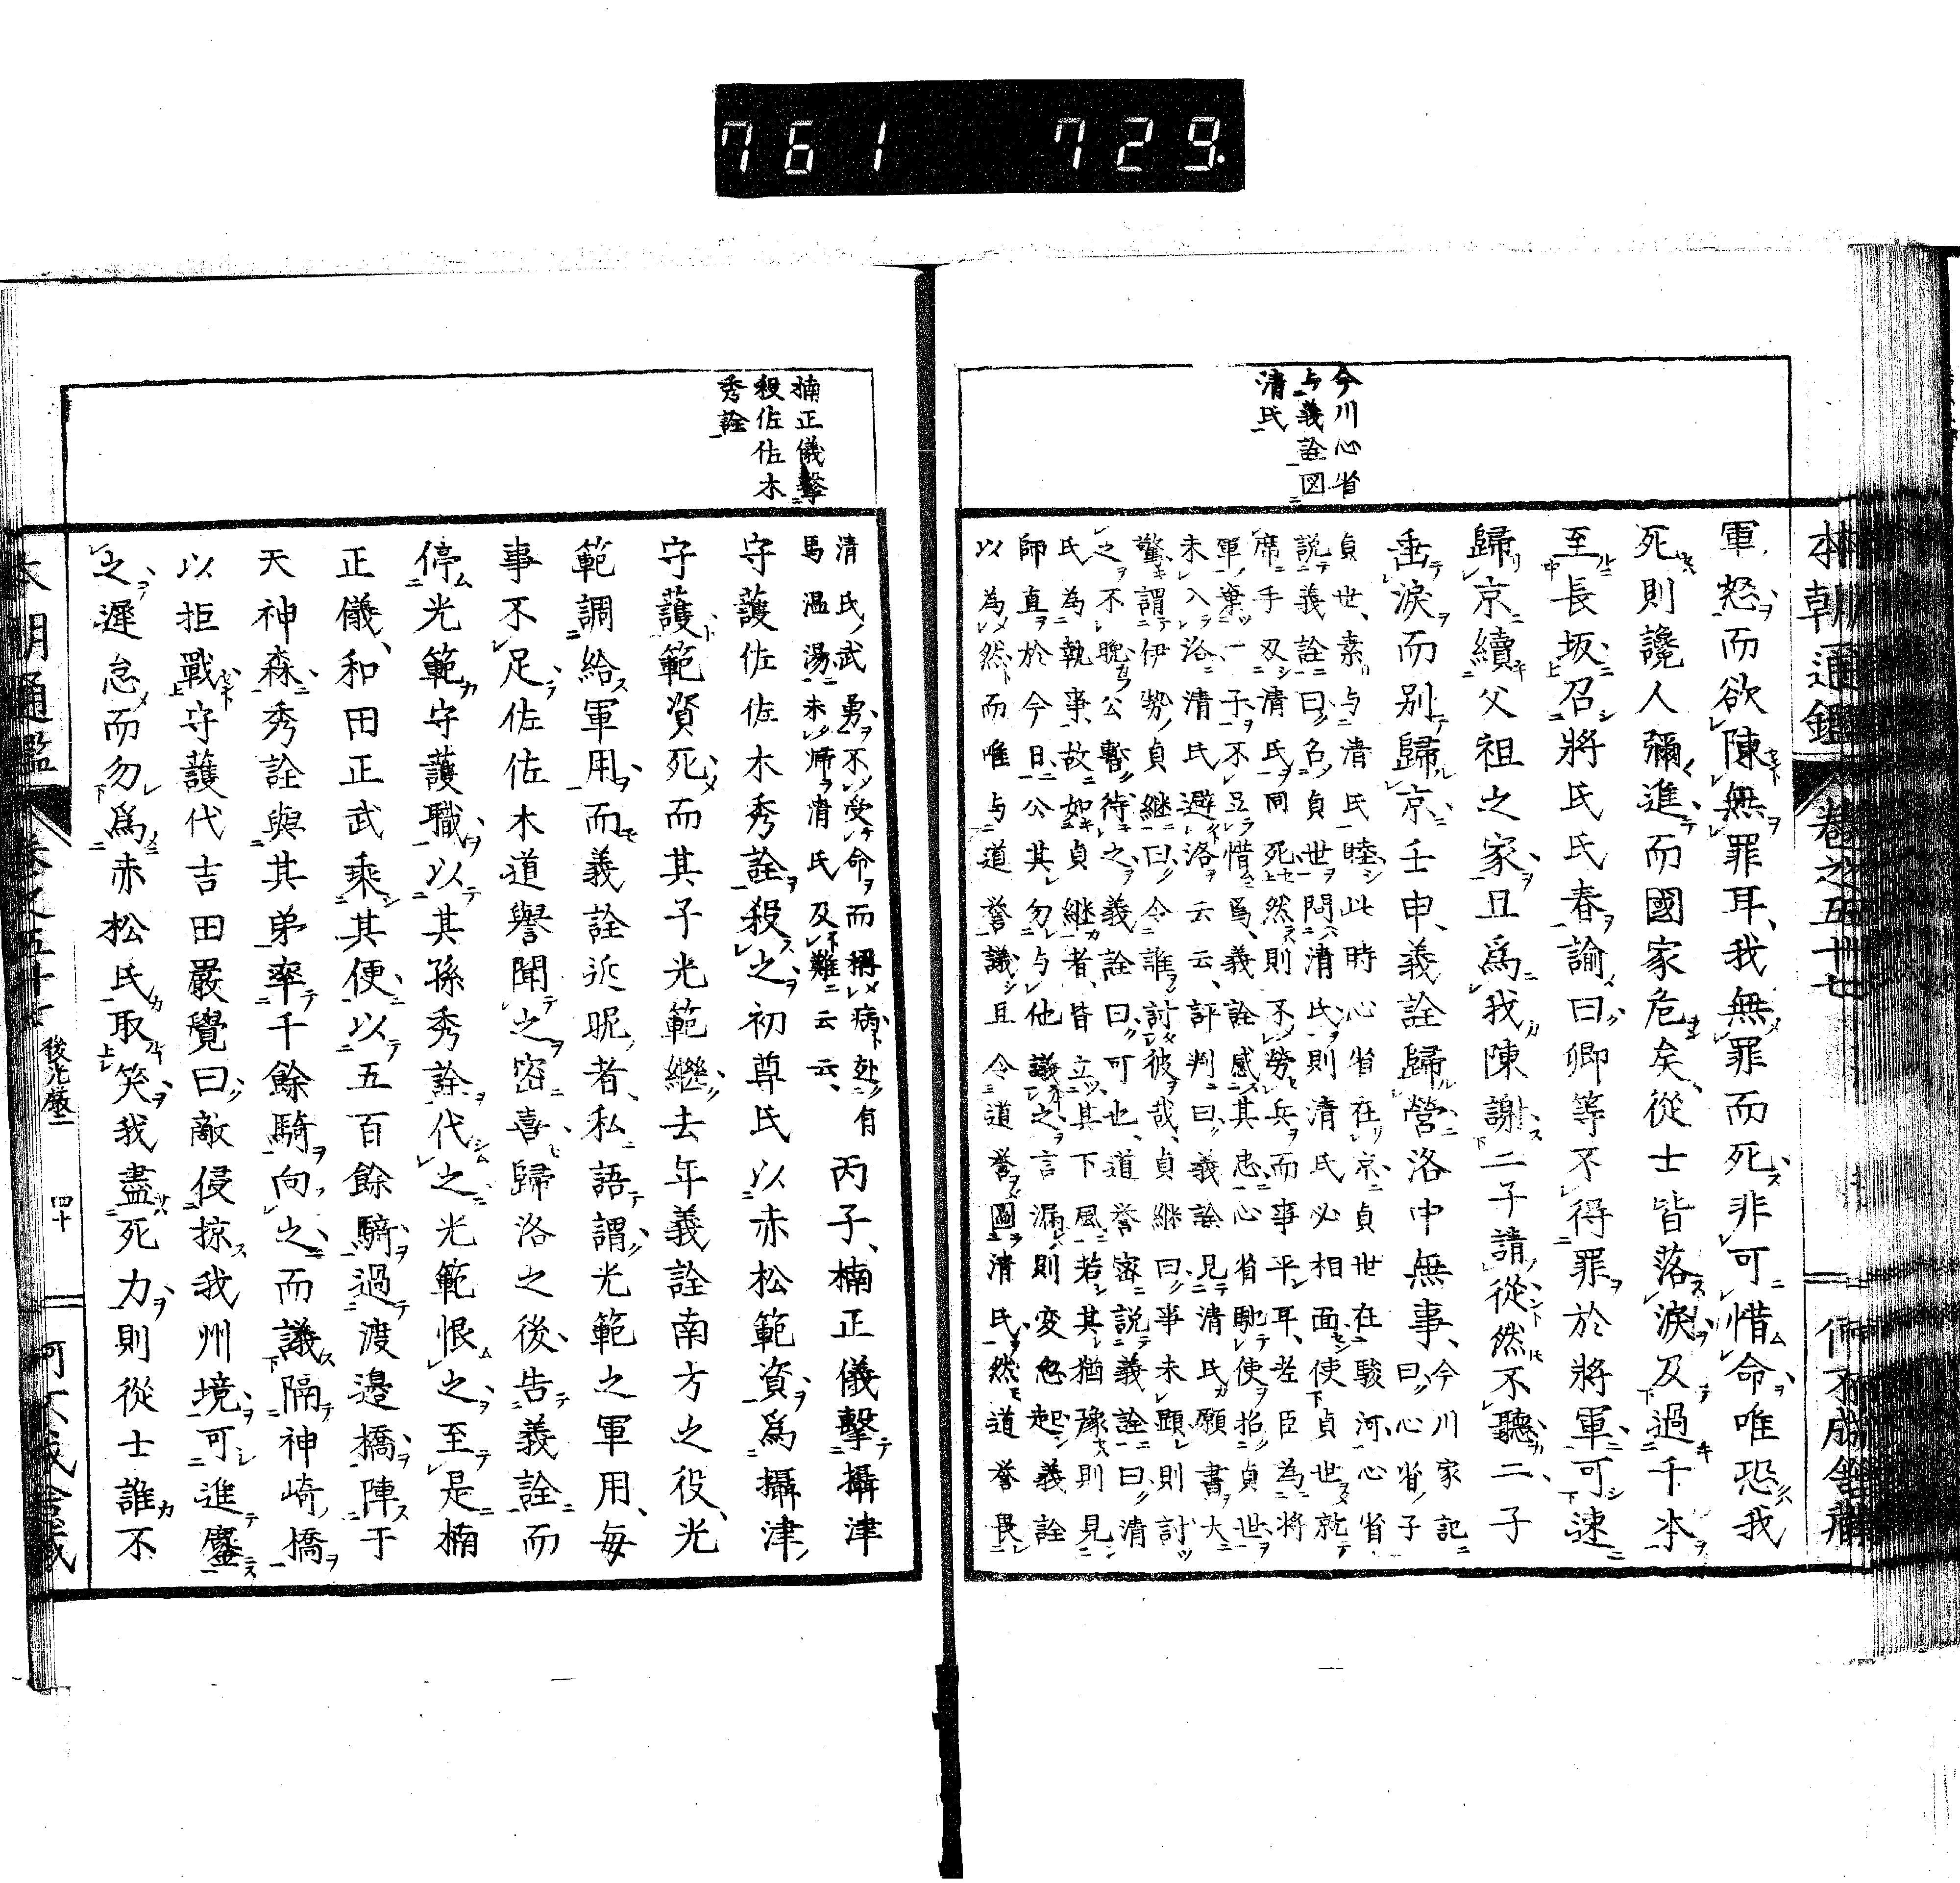 761 729.
本朝通鑑 卷之五十七
今川心省
与義詮図
清氏
軍怒而欲陳無罪耳我無罪而死非可惜命唯恐我
死則讒人彌進而國家危矣從士皆落淚及過千本
至長坂召將氏氏春諭曰卿等不得罪於將軍可速
歸京續父祖之家且爲我陳謝二子請從然不聽二子
垂淚而別歸京壬申義詮歸營洛中無事
今川家記
曰心省子
貞世素与清氏睦此時心省在京貞世在駿河心省
說義詮曰召貞世問清氏則清氏必相面使貞世就
席手刃清氏同死然則不勞兵而事平耳老臣為將
軍棄一子不足惜焉義詮感其忠心省馳使招貞世
未入洛清氏避洛云云評判曰義詮見清氏願書大
驚謂伊勢貞継曰令誰討彼哉貞継曰事未顕則討
之不晩公暫待之義詮曰可也道誉密説義詮曰清
氏為執事故如貞継者皆立其下風若其猶豫則見
師直於今日公其勿与他議之言漏則変忽起義詮
以為然而唯与道誉議且令道誉圖清氏然道誉畏
楠正儀擊
殺佐佐木
秀詮
清氏武勇不受命而稱病赴有
馬温湯未帰清氏及難云云
丙子楠正儀擊攝津
守護佐佐木秀詮殺之初尊氏以赤松範資爲攝津
守護範資死而其子光範繼去年義詮南方之役光
範調給軍用而義詮近昵者私語謂光範之軍用每
事不足佐佐木道譽聞之密喜歸洛之後告義詮而
停光範守護職以其孫秀詮代之光範恨之至是楠
正儀和田正武乘其便以五百餘騎過渡邉橋陣于
天神森秀詮與其弟率千餘騎向之而議隔神崎橋
以拒戰守護代吉田嚴覺曰敵侵掠我州境可進鏖
之遲怠而勿爲赤松氏取笑我盡死力則從士誰不
後光嚴二
四十